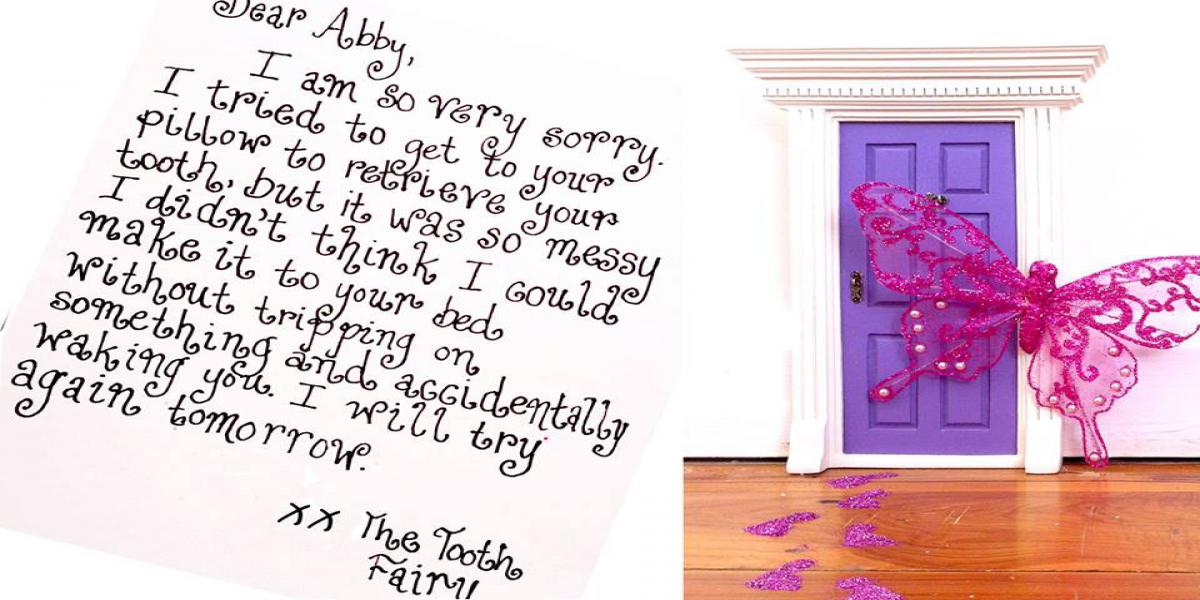 Dear Abby,
I am so very sorry.
I tried to get to your
pillow to retrieve your
tooth, but it was so messy
I didn't think I could
make it to your bed
without tripping on
something and accidentally
waking you. I will try
again tomorrow.
xx The Tooth
Fairy